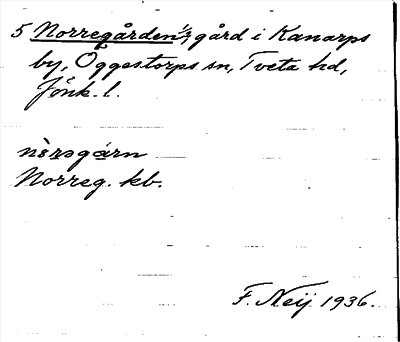 5 Norregården ½ gård i Kanarps
by, Öggestorps sn, Tveta hd,
Jönk. l.
nòrsgárn
Norreg. kb.
F. Neij 1936.